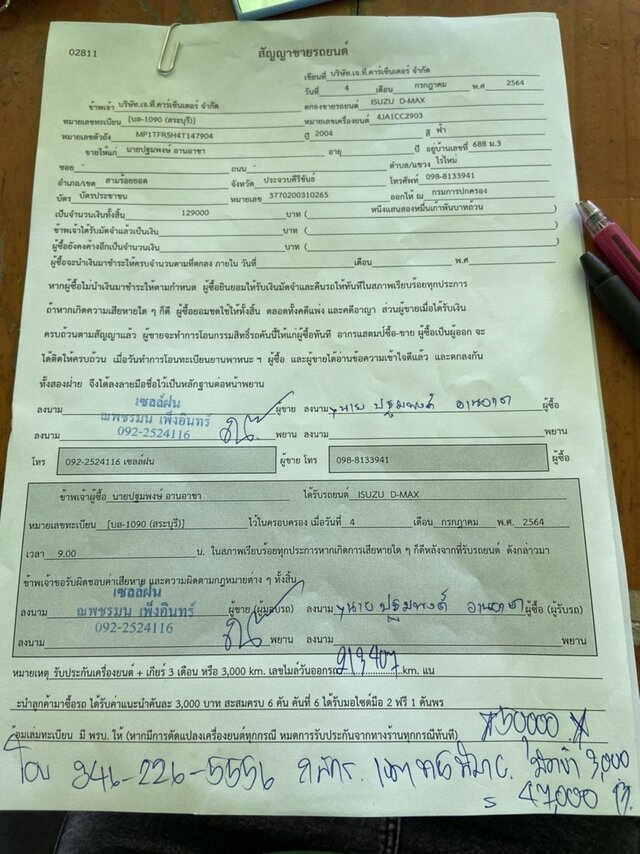 02811
สัญญาขายรถยนต์
เขียนที่ บริษัท.เจ.ที.คาร์เซ็นเตอร์ จำกัด
วันที่ 4 เดือน กรกฎาคม พ.ศ 2564
ข้าพเจ้า บริษัท.เจ.ที.คาร์เซ็นเตอร์ จำกัด ตกลงขายรถยนต์ ISUZU D-MAX
หมายเลขทะเบียน [บล-1090 (สระบุรี)] หมายเลขเครื่องยนต์ 4JA1CC2903
หมายเลขตัวถัง MP1TFR5H4T147904 ปี 2004 สี ฟ้า
ขายให้แก่ นายปฐมพงษ์ อานอาชา อายุ ปี อยู่บ้านเลขที่ 688 ม.3
ซอย - ถนน - ตำบล/แขวง ไร่ใหม่
อำเภอ/เขต สามร้อยยอด จังหวัด ประจวบคีรีขันธ์ โทรศัพท์ 098-8133941
บัตร บัตรประชาชน หมายเลข 3770200310265 ออกให้ ณ กรมการปกครอง
เป็นจำนวนเงินทั้งสิ้น 129000 บาท ( หนึ่งแสนสองหมื่นเก้าพันบาทถ้วน )
ข้าพเจ้าได้รับมัดจำแล้วเป็นเงิน บาท ( )
ผู้ซื้อยังคงค้างอีกเป็นจำนวนเงิน บาท ( )
ผู้ซื้อจะนำเงินมาชำระให้ครบจำนวนตามที่ตกลง ภายใน วันที่ เดือน พ.ศ
หากผู้ซื้อไม่นำเงินมาชำระให้ตามกำหนด ผู้ซื้อยินยอมให้รับเงินมัดจำและคืนรถให้ทันทีในสภาพเรียบร้อยทุกประการ
ถ้าหากเกิดความเสียหายใด ๆ ก็ดี ผู้ซื้อยอมชดใช้ให้ทั้งสิ้น ตลอดทั้งคดีแพ่ง และคดีอาญา ส่วนผู้ขายเมื่อได้รับเงิน
ครบถ้วนตามสัญญาแล้ว ผู้ขายจะทำการโอนกรรมสิทธิ์รถคันนี้ให้แก่ผู้ซื้อทันที อากรแสตมป์ซื้อ-ขาย ผู้ซื้อเป็นผู้ออก จะ
ได้ติดให้ครบถ้วน เมื่อวันทำการโอนทะเบียนยานพาหนะ ฯ ผู้ซื้อ และผู้ขายได้อ่านข้อความเข้าใจดีแล้ว และตกลงกัน
ทั้งสองฝ่าย จึงได้ลงลายมือชื่อไว้เป็นหลักฐานต่อหน้าพยาน
เซลล์ฝน
ลงนาม ณพชรมน เพ็งอินทร์ ผู้ขาย ลงนาม นาย ปฐมพงศ์ อานอาชา ผู้ซื้อ
ลงนาม 092-2524116 พยาน ลงนาม พยาน
โทร 092-2524116 เซลล์ฝน ผู้ขาย โทร 098-8133941 ผู้ซื้อ
ข้าพเจ้าผู้ซื้อ นายปฐมพงษ์ อานอาชา ได้รับรถยนต์ ISUZU D-MAX
หมายเลขทะเบียน [บล-1090 (สระบุรี)] ไว้ในครอบครอง เมื่อวันที่ 4 เดือน กรกฎาคม พ.ศ. 2564
เวลา 9.00 น. ในสภาพเรียบร้อยทุกประการหากเกิดการเสียหายใด ๆ ก็ดีหลังจากที่รับรถยนต์ ดังกล่าวมา
ข้าพเจ้าขอรับผิดชอบค่าเสียหาย และความผิดตามกฎหมายต่าง ๆ ทั้งสิ้น
เซลล์ฝน
ลงนาม ณพชรมน เพ็งอินทร์ ผู้ขาย (ผู้มอบรถ) ลงนาม นาย ปฐมพงศ์ อานอาชา ผู้ซื้อ (ผู้รับรถ)
ลงนาม 092-2524116 พยาน ลงนาม พยาน
หมายเหตุ รับประกันเครื่องยนต์ + เกียร์ 3 เดือน หรือ 3,000 km. เลขไมล์วันออกรถ 213407 km. แน
ะนำลูกค้ามาซื้อรถ ได้รับค่าแนะนำคันละ 3,000 บาท สะสมครบ 6 คัน คันที่ 6 ได้รับมอไซด์มือ 2 ฟรี 1 คันพร
้อมเล่มทะเบียน มี พรบ. ให้ (หากมีการดัดแปลงเครื่องยนต์ทุกกรณี หมดการรับประกันจากทางร้านทุกกรณีทันที)
50000
โอน 346-226-5556 3,000
47,000 B.